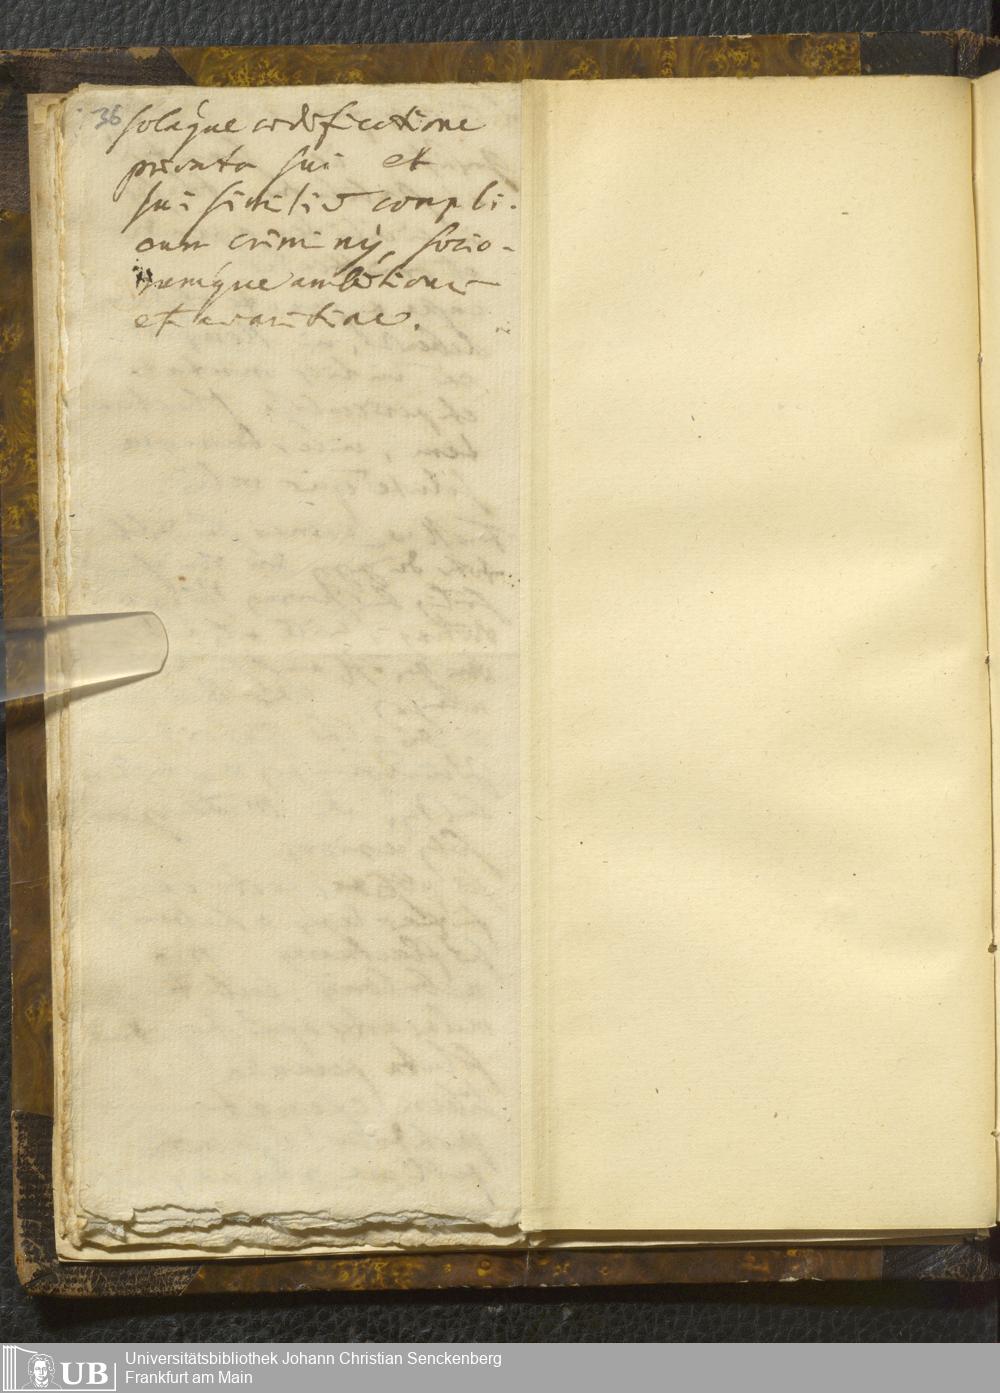 36
solaque aedificatione
privata sui et
sui similiū compli-
cum criminū, socio-
rumque ambitionis
et avaritiae.
UB
Universitätsbibliothek Johann Christian Senckenberg
Frankfurt am Main